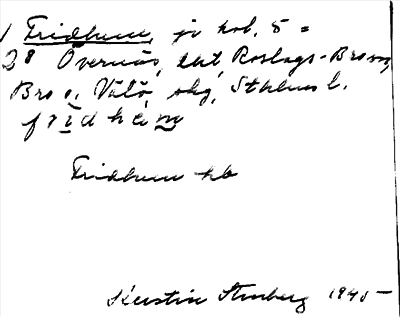 Fridhem, jr hab. 5 =
2⁸ Övernäs, lht, Roslags-Bro sn,
Bro o. Vätö skg, Sthlms l.
fridhäm
Fridhem hb
Kerstin Stenberg 1940-